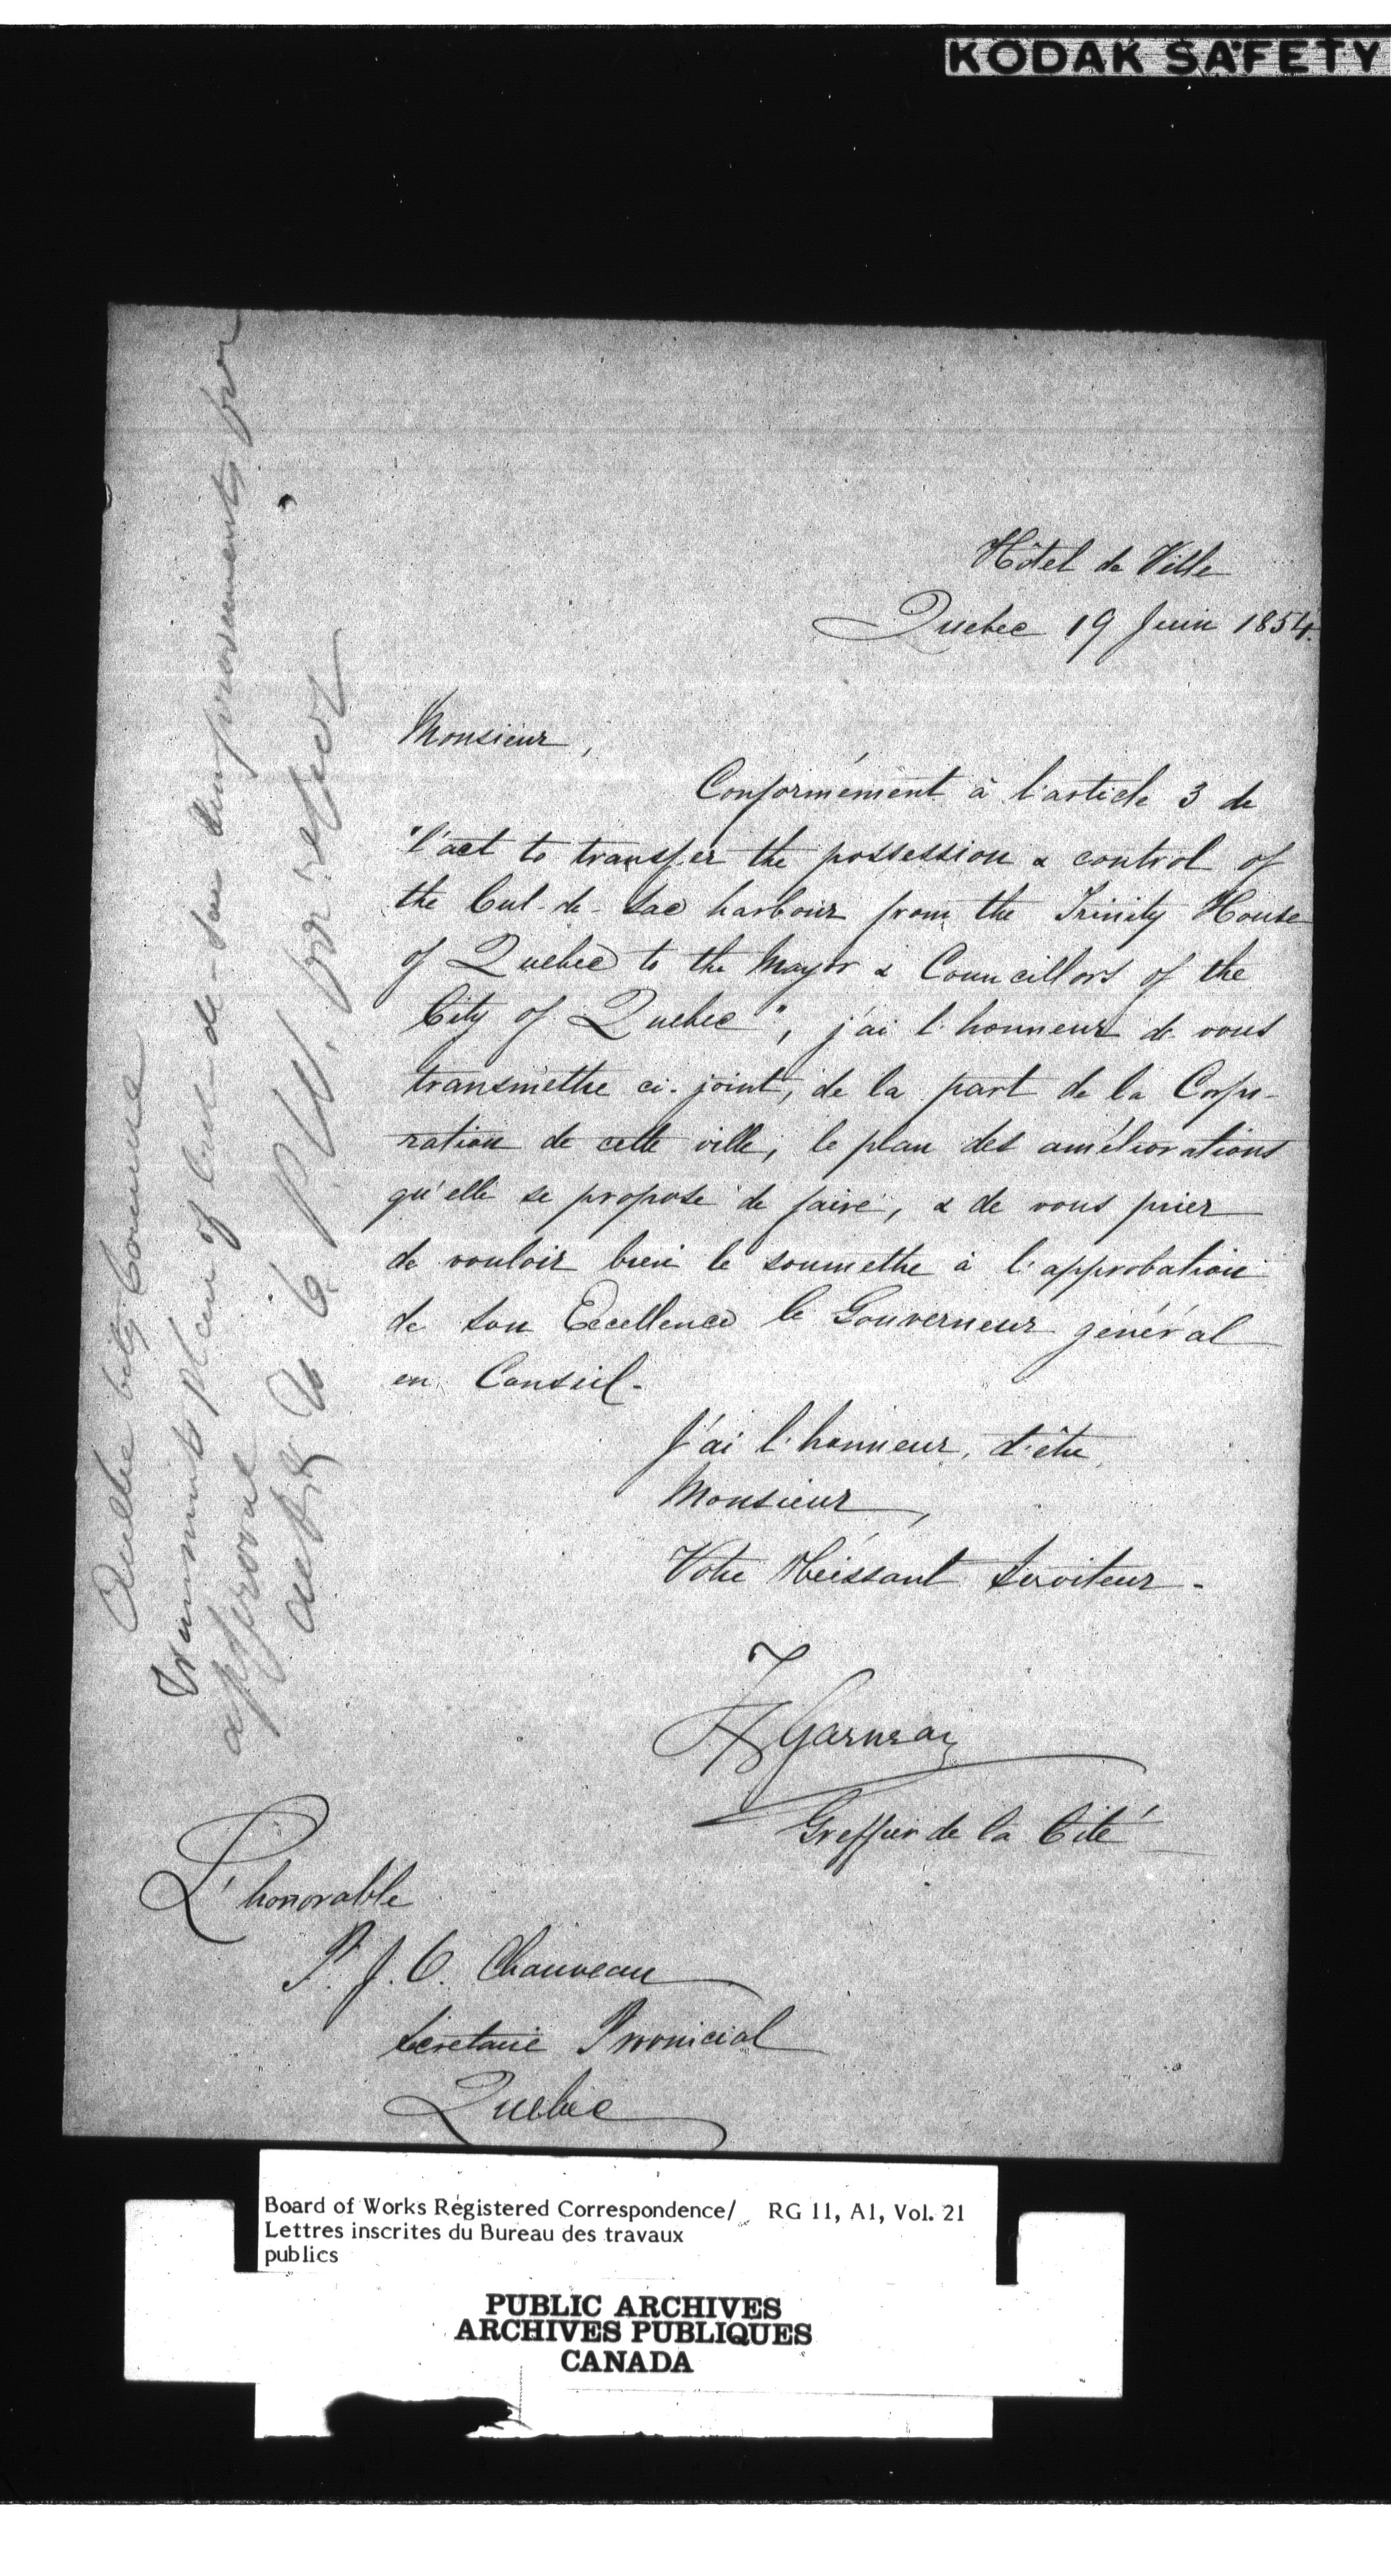 KODAK SAFETY
Hôtel de Ville
Quebec 19 Juin 1854.
Monsieur,
Conformément à l'article 3 de
"l'act to transfer the possession & control of
the Cul-de-Sac harbour from the Trinity House
of Quebec to the Mayor & Councillors of the
City of Quebec", j'ai l'honneur de vous
transmettre ci-joint, de la part de la Corpo-
ration de cette ville, le plan des améliorations
qu'elle se propose de faire, & de vous prier
de vouloir bien le soumettre à l'approbation
de son Excellence le Gouverneur général
en Conseil.
J'ai l'honneur d'être,
Monsieur,
Votre Obéissant Serviteur.
FX Garneau
Greffier de la Cité
L'honorable
P. J. O. Chauveau
Secretaire Provincial
Quebec
Quebec City Council
Transmits plan of Cul-de-Sac improvements for
approval
P.W. for report
Board of Works Registered Correspondence/ RG 11, A1, Vol. 21
Lettres inscrites du Bureau des travaux
publics
PUBLIC ARCHIVES
ARCHIVES PUBLIQUES
CANADA